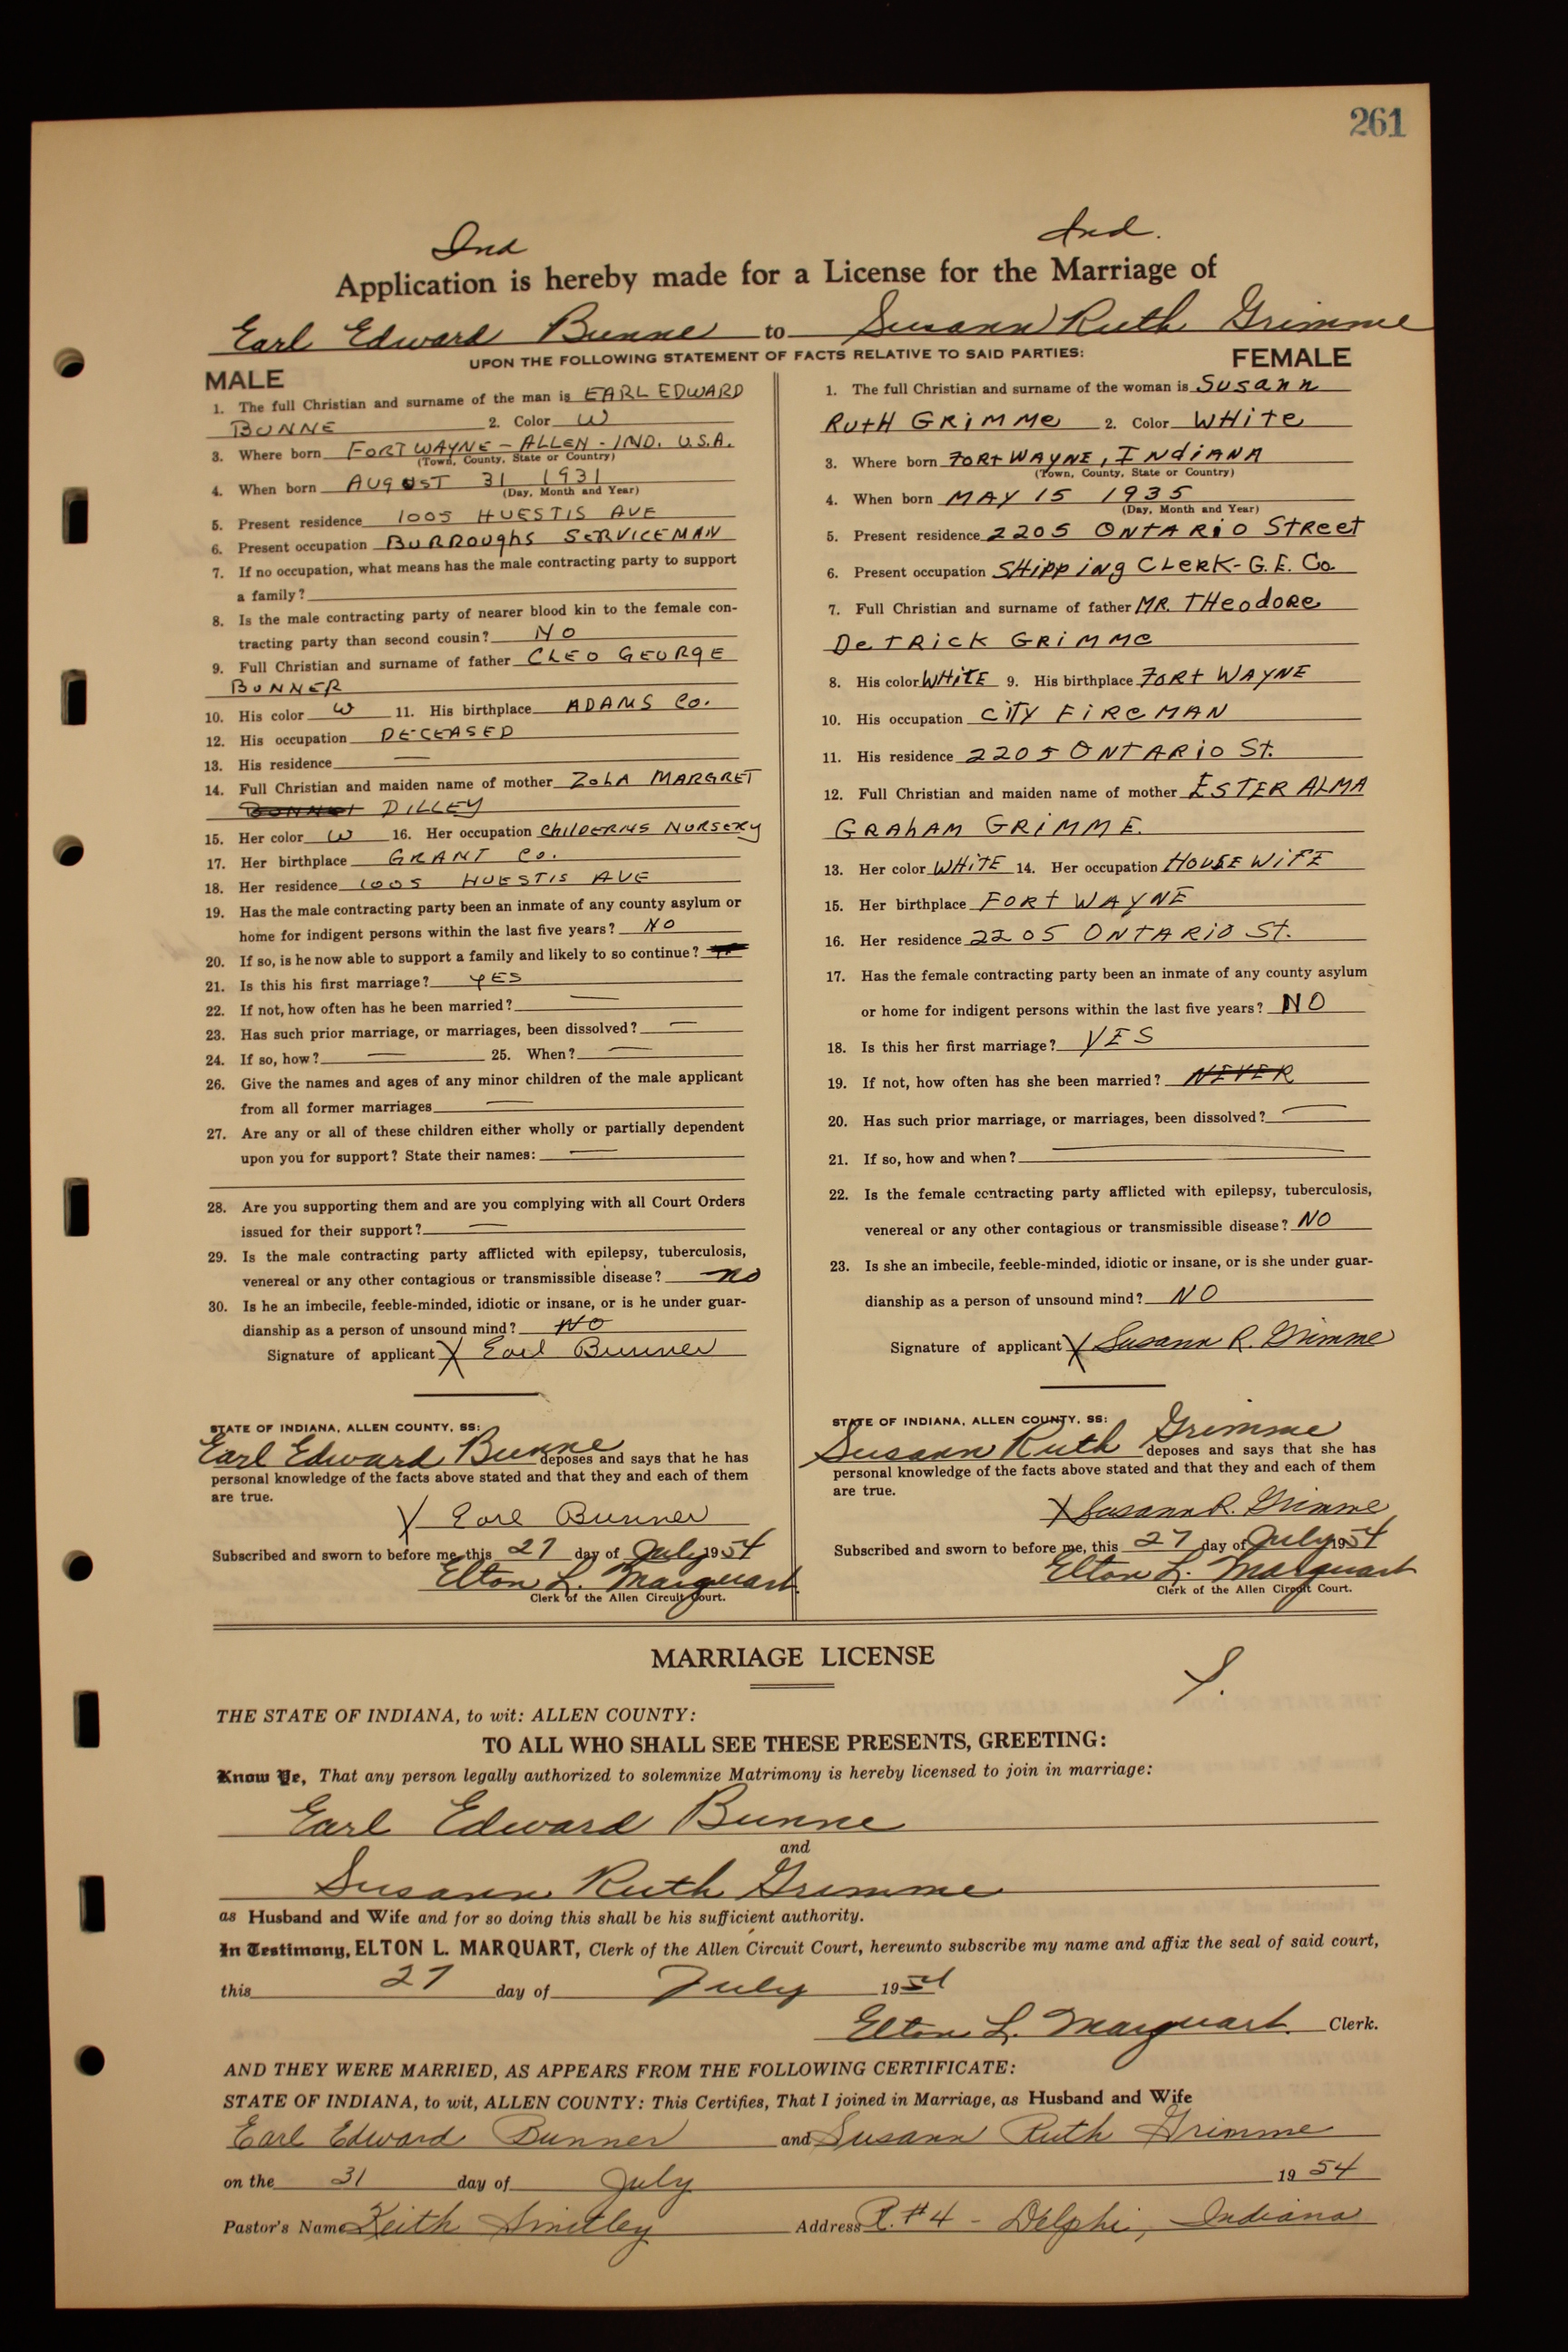 261
Ind Ind.
Application is hereby made for a License for the Marriage of
Earl Edward Bunne to Susann Ruth Grimme
UPON THE FOLLOWING STATEMENT OF FACTS RELATIVE TO SAID PARTIES:
MALE
1. The full Christian and surname of the man is EARL EDWARD
BUNNE 2. Color W
3. Where born FORT WAYNE - ALLEN - IND. U.S.A.
(Town, County, State or Country)
4. When born AUGUST 31 1931
(Day, Month and Year)
5. Present residence 1005 HUESTIS AVE
6. Present occupation BURROUGHS SERVICEMAN
7. If no occupation, what means has the male contracting party to support
a family?
8. Is the male contracting party of nearer blood kin to the female con-
tracting party than second cousin? NO
9. Full Christian and surname of father CLEO GEORGE
BUNNER
10. His color W 11. His birthplace ADAMS Co.
12. His occupation DECEASED
13. His residence —
14. Full Christian and maiden name of mother ZOLA MARGRET
DILLEY
15. Her color W 16. Her occupation CHILDERNS NURSERY
17. Her birthplace GRANT Co.
18. Her residence 1005 HUESTIS AVE
19. Has the male contracting party been an inmate of any county asylum or
home for indigent persons within the last five years? NO
20. If so, is he now able to support a family and likely to so continue?
21. Is this his first marriage? YES
22. If not, how often has he been married? —
23. Has such prior marriage, or marriages, been dissolved? —
24. If so, how? — 25. When? —
26. Give the names and ages of any minor children of the male applicant
from all former marriages —
27. Are any or all of these children either wholly or partially dependent
upon you for support? State their names: —
28. Are you supporting them and are you complying with all Court Orders
issued for their support? —
29. Is the male contracting party afflicted with epilepsy, tuberculosis,
venereal or any other contagious or transmissible disease? no
30. Is he an imbecile, feeble-minded, idiotic or insane, or is he under guar-
dianship as a person of unsound mind? NO
Signature of applicant X Earl Bunner
STATE OF INDIANA, ALLEN COUNTY, SS:
Earl Edward Bunne deposes and says that he has
personal knowledge of the facts above stated and that they and each of them
are true.
X Earl Bunner
Subscribed and sworn to before me, this 27 day of July 1954
Elton L. Marquart
Clerk of the Allen Circuit Court.
FEMALE
1. The full Christian and surname of the woman is Susann
RUTH GRIMME 2. Color WHITE
3. Where born FORT WAYNE, INDIANA
(Town, County, State or Country)
4. When born MAY 15 1935
(Day, Month and Year)
5. Present residence 2205 ONTARIO STREET
6. Present occupation SHIPPING CLERK - G.E. Co.
7. Full Christian and surname of father MR. THEODORE
DETRICK GRIMME
8. His color WHITE 9. His birthplace FORT WAYNE
10. His occupation CITY FIREMAN
11. His residence 2205 ONTARIO St.
12. Full Christian and maiden name of mother ESTER ALMA
GRAHAM GRIMME.
13. Her color WHITE 14. Her occupation HOUSEWIFE
15. Her birthplace FORT WAYNE
16. Her residence 2205 ONTARIO St.
17. Has the female contracting party been an inmate of any county asylum
or home for indigent persons within the last five years? NO
18. Is this her first marriage? YES
19. If not, how often has she been married? NEVER
20. Has such prior marriage, or marriages, been dissolved? —
21. If so, how and when? —
22. Is the female contracting party afflicted with epilepsy, tuberculosis,
venereal or any other contagious or transmissible disease? NO
23. Is she an imbecile, feeble-minded, idiotic or insane, or is she under guar-
dianship as a person of unsound mind? NO
Signature of applicant X Susann R. Grimme
STATE OF INDIANA, ALLEN COUNTY, SS:
Susann Ruth Grimme deposes and says that she has
personal knowledge of the facts above stated and that they and each of them
are true.
X Susann R. Grimme
Subscribed and sworn to before me, this 27 day of July 1954
Elton L. Marquart
Clerk of the Allen Circuit Court.
MARRIAGE LICENSE
THE STATE OF INDIANA, to wit: ALLEN COUNTY:
TO ALL WHO SHALL SEE THESE PRESENTS, GREETING:
Know Ye, That any person legally authorized to solemnize Matrimony is hereby licensed to join in marriage:
Earl Edward Bunne
and
Susann Ruth Grimme
as Husband and Wife and for so doing this shall be his sufficient authority.
In Testimony, ELTON L. MARQUART, Clerk of the Allen Circuit Court, hereunto subscribe my name and affix the seal of said court,
this 27 day of July 1954
Elton L. Marquart Clerk.
AND THEY WERE MARRIED, AS APPEARS FROM THE FOLLOWING CERTIFICATE:
STATE OF INDIANA, to wit, ALLEN COUNTY: This Certifies, That I joined in Marriage, as Husband and Wife
Earl Edward Bunner and Susann Ruth Grimme
on the 31 day of July 1954
Pastor's Name Keith Address R. #4 - Delphi, Indiana